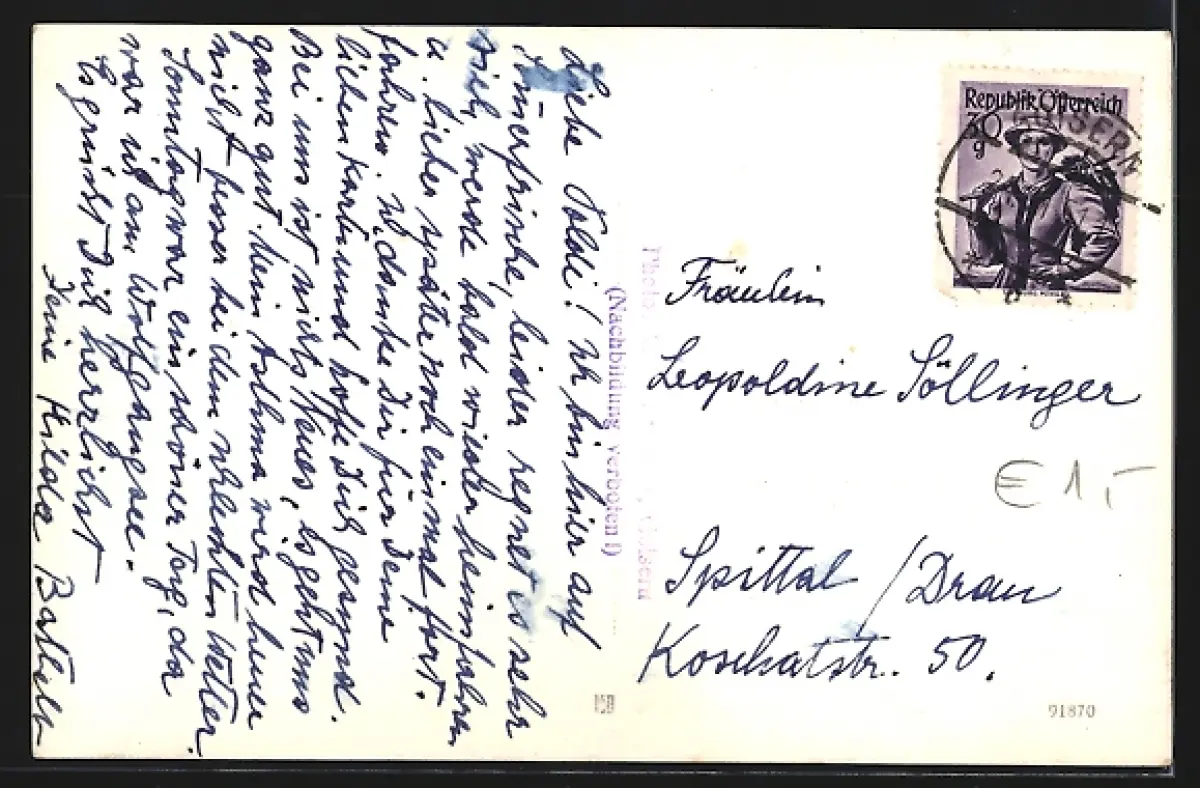 Liebe Poldi! Ich bin hier auf
Sommerfrische, leider regnet es sehr
viel, werde bald wieder heimfahren
u. lieber später noch einmal fort
fahren. Ich danke Dir für Deine
lieben Karten und hoffe Dich gesund.
Bei uns ist nichts Neues, es geht uns
ganz gut. Mein Asthma wird heuer
nicht besser bei dem schlechten Wetter.
Sonntag war ein schöner Tag, da
war ich am Wolfgangsee.
Es grüßt Dich herzlichst
Deine Hilda
(Nachbildung verboten!)
Photo Goisern
Republik Österreich
30
g
GOISERN
Fräulein
Leopoldine Söllinger
€ 1,-
Spittal / Drau
Koschatstr. 50.
91870